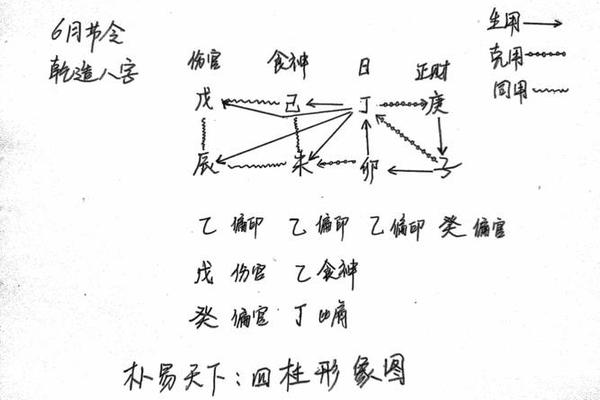 6月节令
乾造八字
生用
克用
同用
伤官 食神 日 正财
戊 己 丁 庚
辰 未 卯 子
乙 偏印 乙 偏印 乙 偏印 癸 偏官
戊 伤官 乙 食神
癸 偏官 丁 比肩
朴易天下:四柱形象图